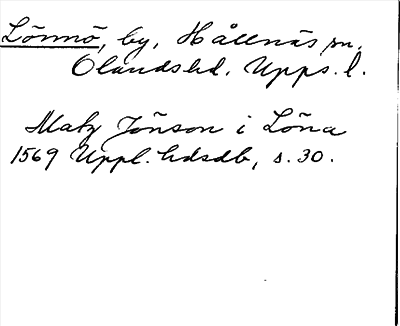 Lönnö, by, Hållnäs sn.
Olands hd. Upps. l.
Matz Jönson i Löna
1569 Uppl. hdsdb, s. 30.